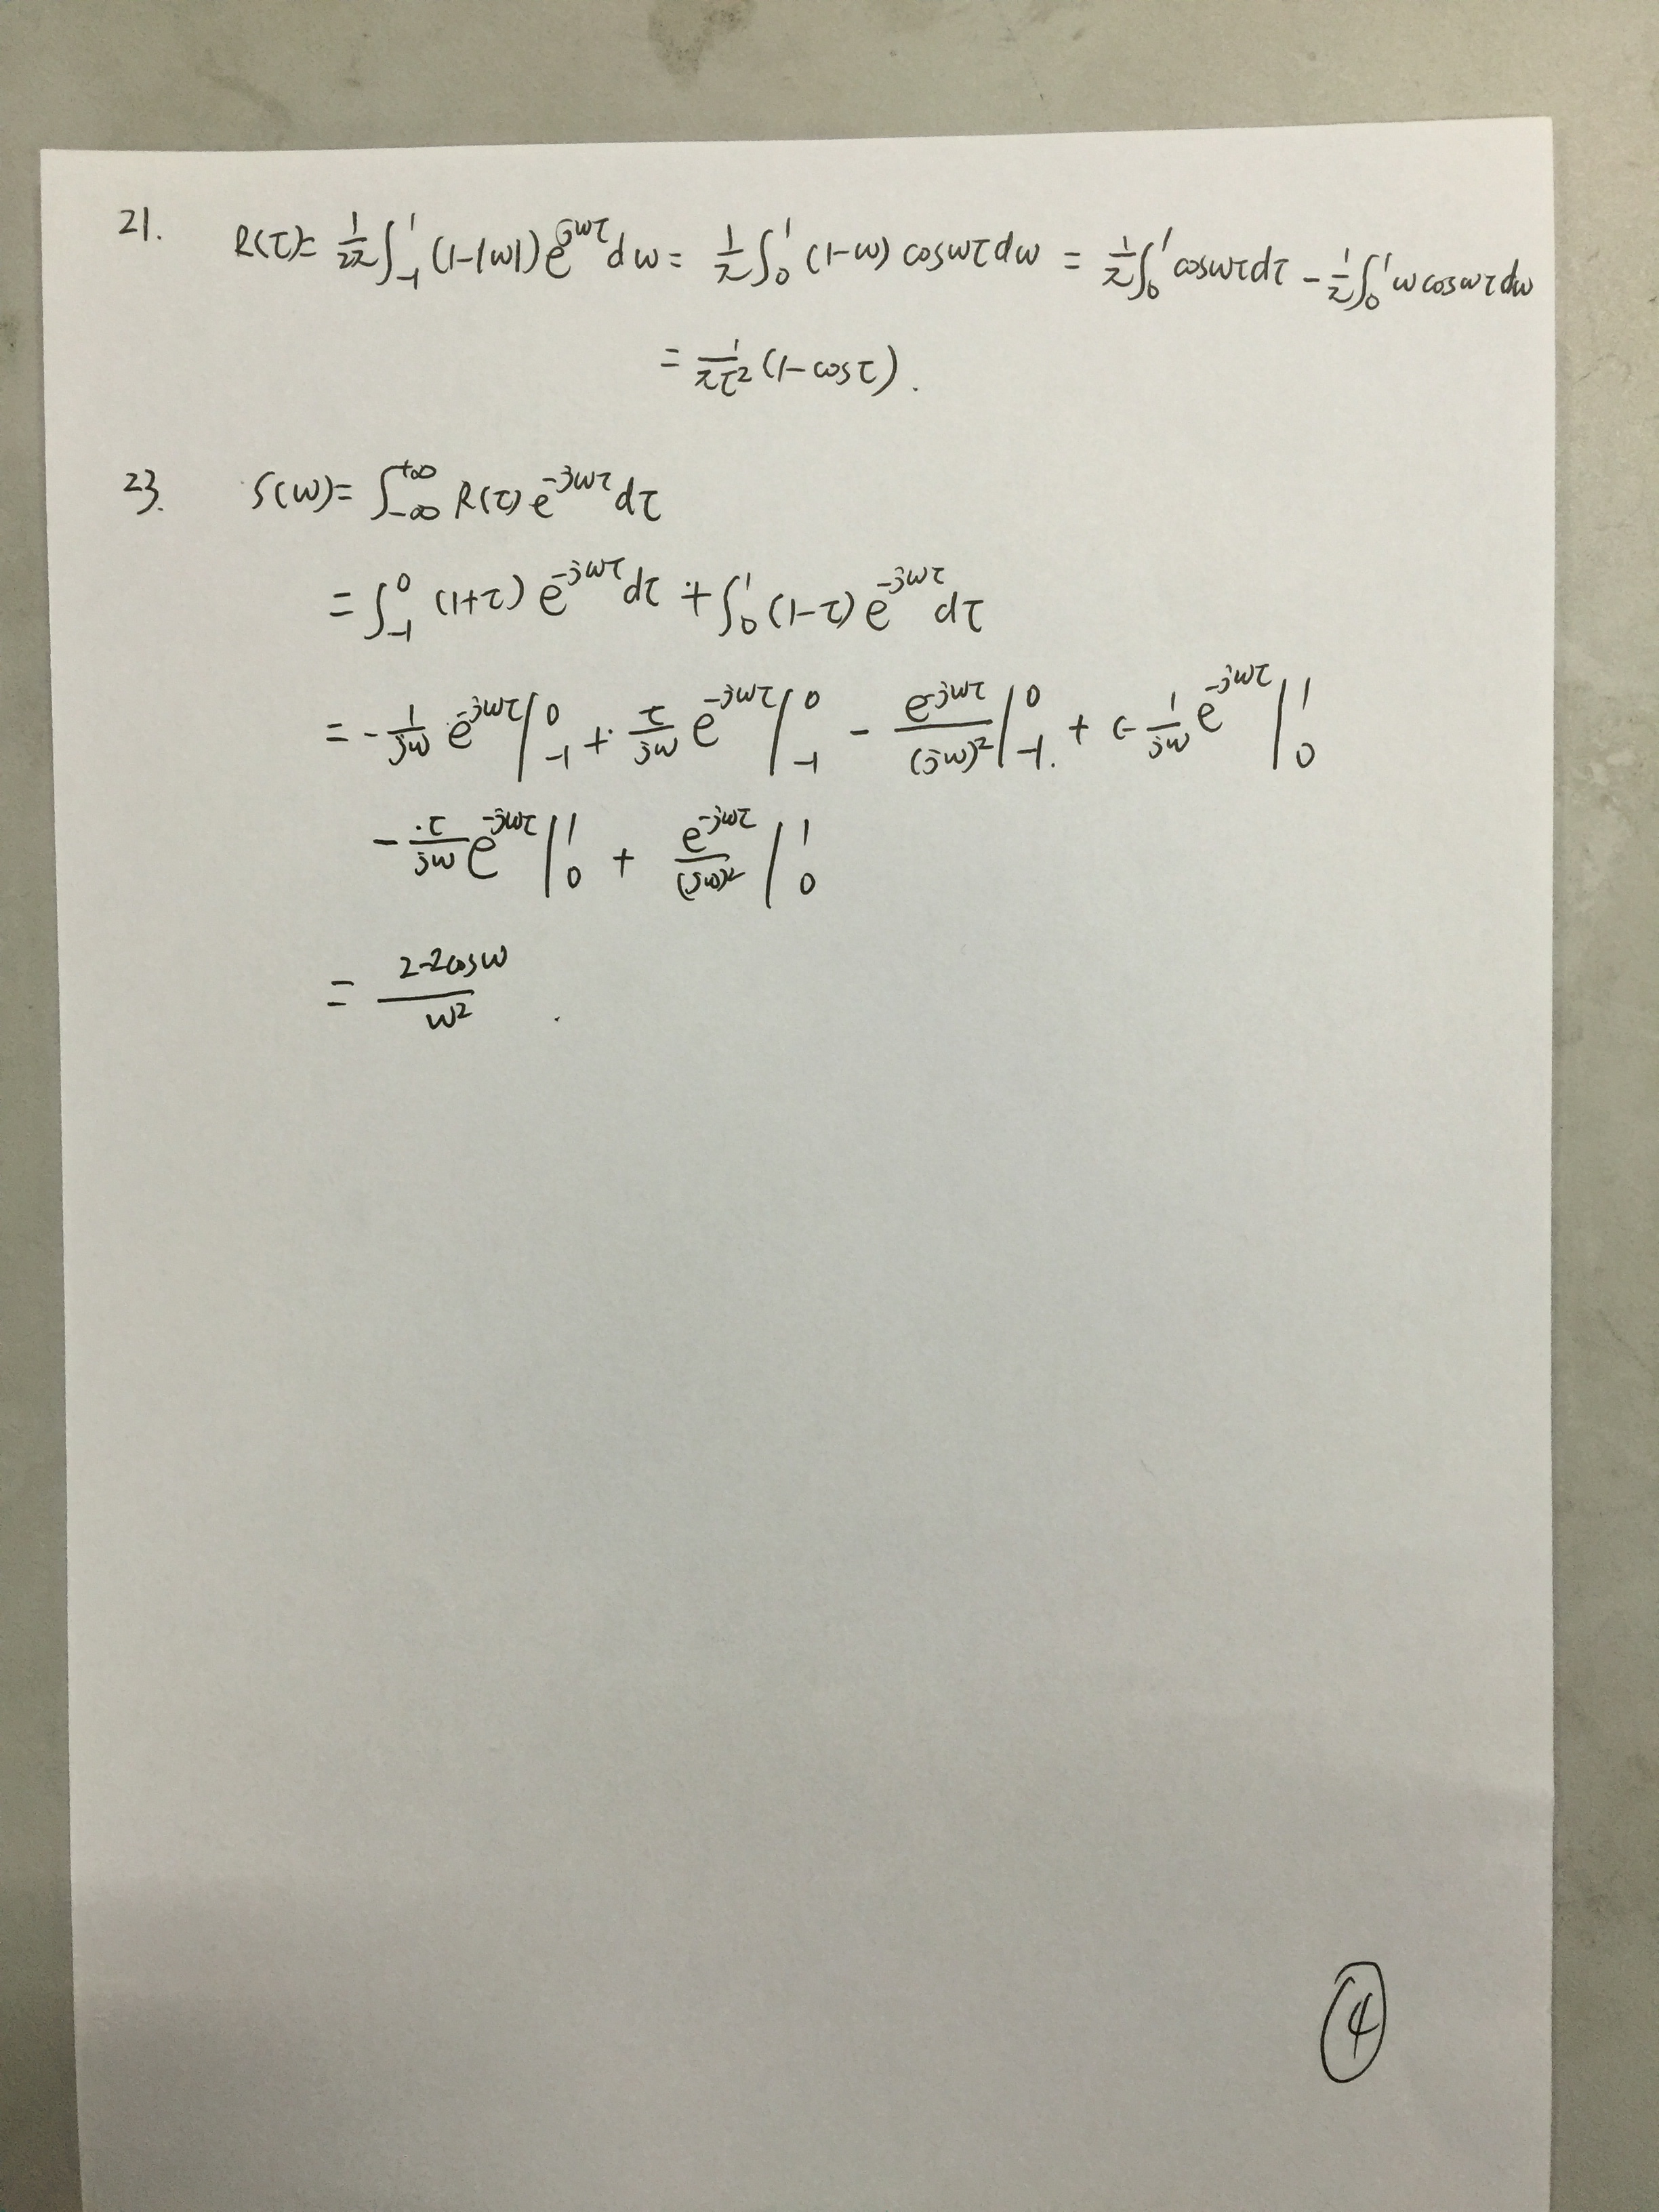 21. R(τ)= 1/2π ∫_{-1}^{1} (1-|ω|) e^{jωτ} dω = 1/π ∫_0^1 (1-ω) cosωτ dω = 1/π ∫_0^1 cosωτ dτ - 1/π ∫_0^1 ω cosωτ dω
= 1/πτ² (1-cosτ).
23. S(ω)= ∫_{-∞}^{+∞} R(τ) e^{-jωτ} dτ
= ∫_{-1}^0 (1+τ) e^{-jωτ} dτ + ∫_0^1 (1-τ) e^{-jωτ} dτ
= - 1/jω e^{-jωτ} |_{-1}^0 + τ/jω e^{-jωτ} |_{-1}^0 - e^{-jωτ}/(jω)² |_{-1}^0 + (- 1/jω e^{-jωτ} |_0^1
- τ/jω e^{-jωτ} |_0^1 + e^{-jωτ}/(jω)² |_0^1
= (2-2cosω)/ω² .
④